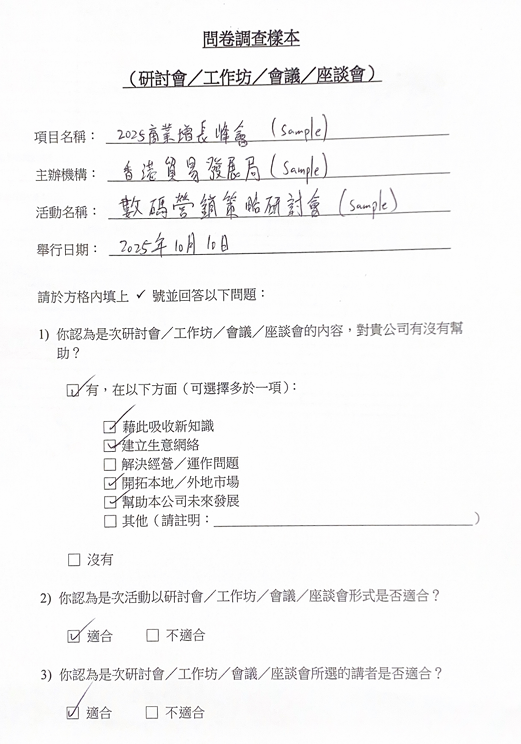 問卷調查樣本
（研討會／工作坊／會議／座談會）
項目名稱： 2025商業增長峰會 (Sample)
主辦機構： 香港貿易發展局 (Sample)
活動名稱： 數碼營銷策略研討會 (Sample)
舉行日期： 2025年10月10日
請於方格內填上 ✓ 號並回答以下問題：
1) 你認為是次研討會／工作坊／會議／座談會的內容，對貴公司有沒有幫
助？
☑ 有，在以下方面（可選擇多於一項）：
☑ 藉此吸收新知識
☑ 建立生意網絡
☐ 解決經營／運作問題
☑ 開拓本地／外地市場
☑ 幫助本公司未來發展
☐ 其他（請註明：＿＿＿＿＿＿＿＿＿＿＿＿＿＿＿＿）
☐ 沒有
2) 你認為是次活動以研討會／工作坊／會議／座談會形式是否適合？
☑ 適合 ☐ 不適合
3) 你認為是次研討會／工作坊／會議／座談會所選的講者是否適合？
☑ 適合 ☐ 不適合